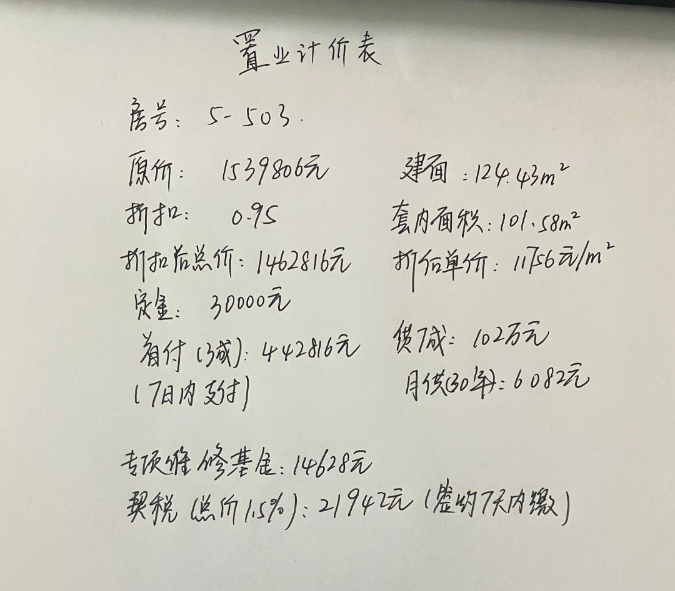 置业计价表
房号：5-503.
原价：1539806元 建面：124.43m²
折扣：0.95 套内面积：101.58m²
折扣后总价：1462816元 折后单价：11756元/m²
定金：30000元
首付（3成）：442816元 贷7成：102万元
（7日内支付） 月供（30年）：6082元
专项维修基金：14628元
契税（总价1.5%）：21942元（签约7天内缴）